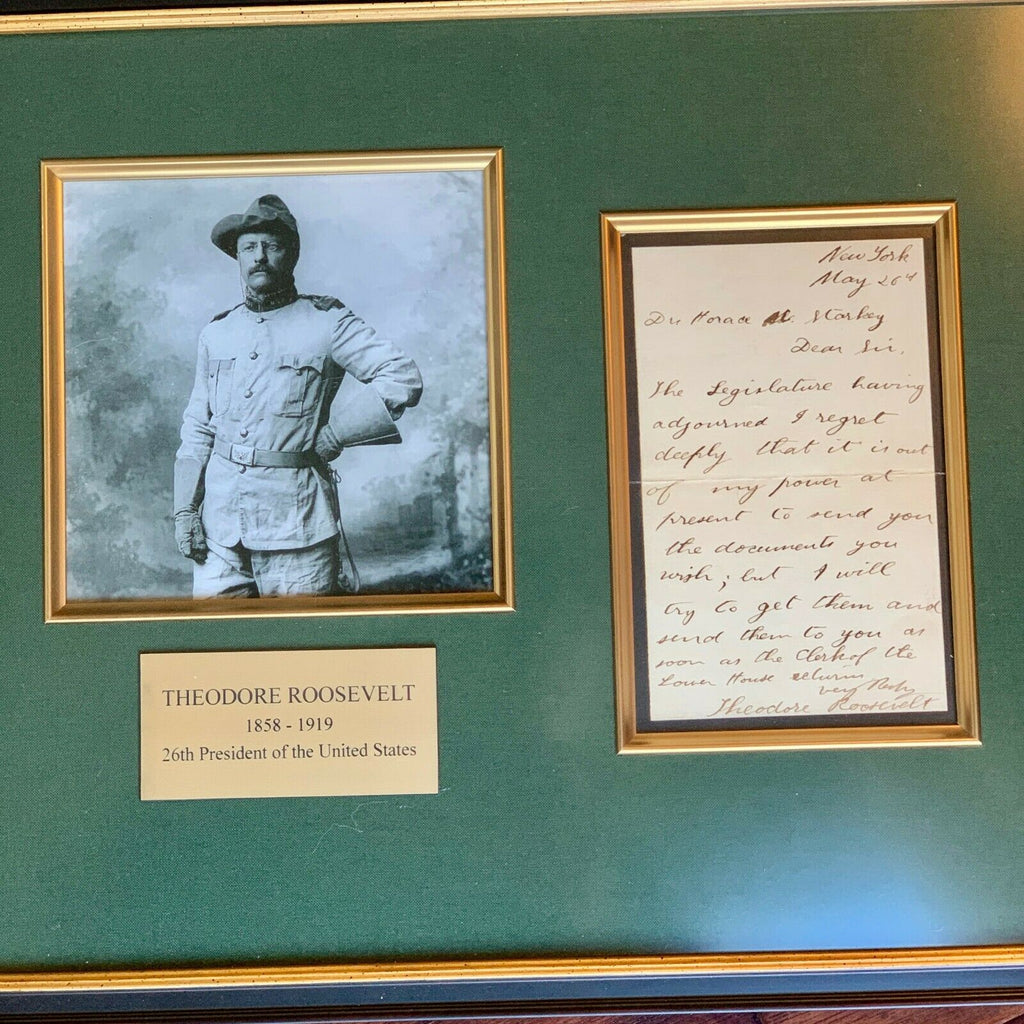 THEODORE ROOSEVELT
1858 - 1919
26th President of the United States
New York
May 26d
Dr Horace M. Starkey
Dear Sir,
The Legislature having
adjourned I regret
deeply that it is out
of my power at
present to send you
the documents you
wish; but I will
try to get them and
send them to you as
soon as the Clerk of the
Lower House returns
very
Theodore Roosevelt